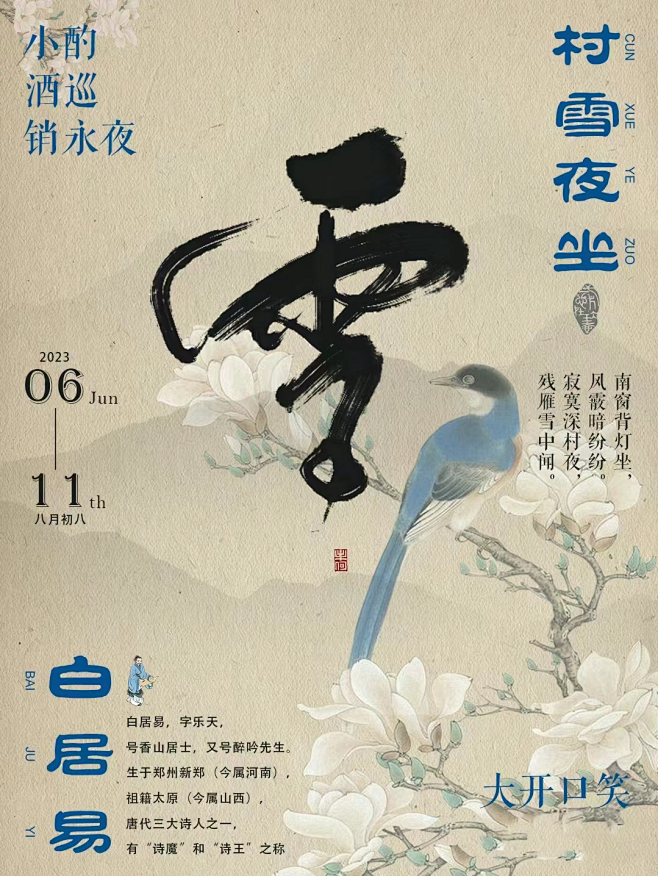 小酌
酒巡
销永夜
村雪夜坐
CUN XUE YE ZUO
雪
2023
06 Jun
11 th
八月初八
南窗背灯坐，
风霰暗纷纷。
寂寞深村夜，
残雁雪中闻。
白居易
BAI JU YI
白居易，字乐天，
号香山居士，又号醉吟先生。
生于郑州新郑（今属河南），
祖籍太原（今属山西），
唐代三大诗人之一，
有“诗魔”和“诗王”之称
大开口笑